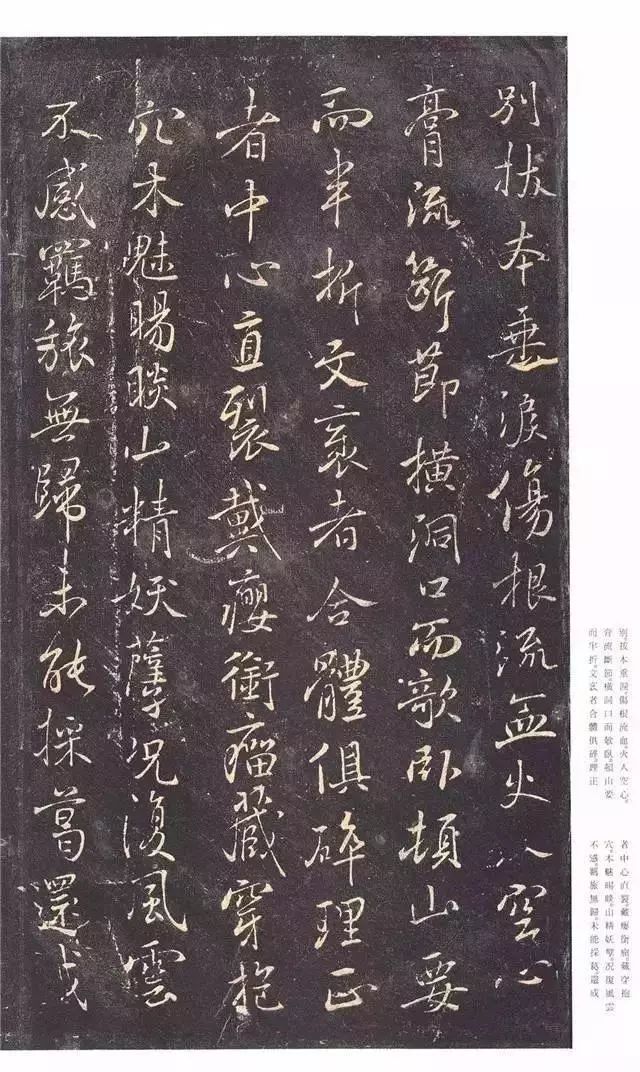 別拔本垂淚傷根流血火入空心
膏流斷節橫洞口而欹臥頓山要
而半折文袤者合體俱碎理正
者中心直裂戴癭銜瘤藏穿抱
穴木魅睗睒山精妖孽況復風雲
不感羈旅無歸未能採葛還成
別拔本垂淚傷根流血火入空心
膏流斷節橫洞口而欹臥頓山要
而半折文袤者合體俱碎理正
者中心直裂戴癭銜瘤藏穿抱
穴木魅睗睒山精妖孽況復風雲
不感羈旅無歸未能採葛還成